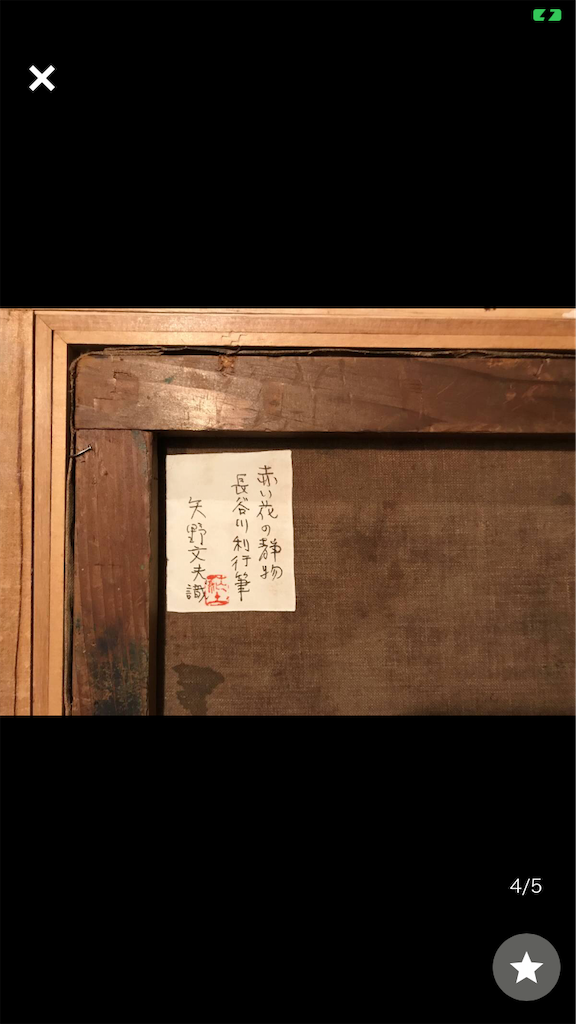 赤い花の静物
長谷川利行筆
矢野文夫識
4/5